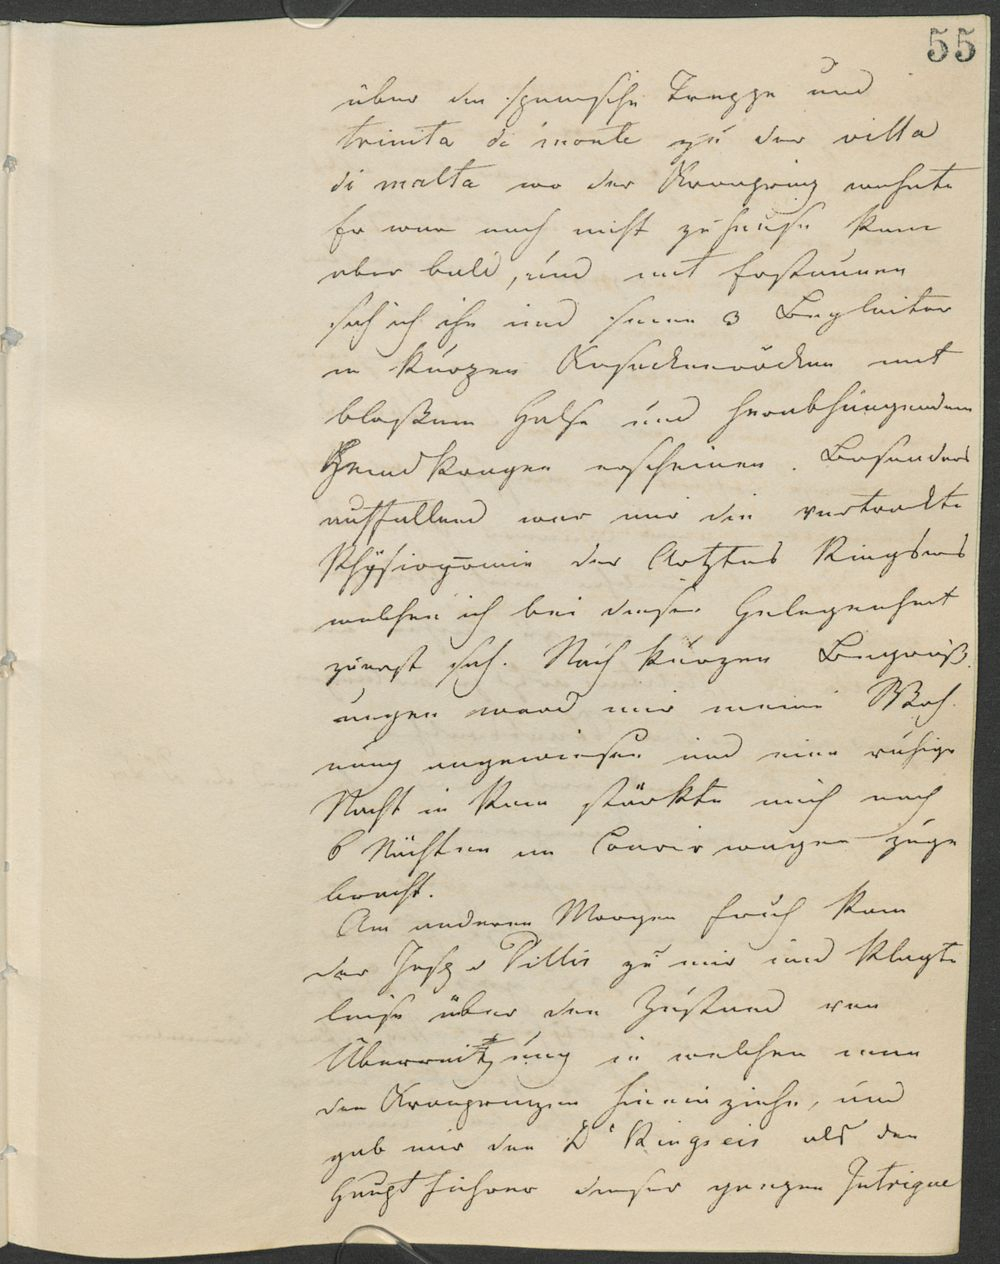 55
über die spanische Treppe und
trinita di monte zu der villa
di malta wo der Kronprinz wohnte
Er war noch nicht zuhause kam
aber bald, und mit Erstaunen
sah ich ihn und seine 3 Begleiter
in kurzen Kosackenröcken mit
bloßem Halse und herabhängendem
Hemdkragen erscheinen. Besonders
auffallend war mir die vertrakte
Physiognomie des Arztes Ringseis
welchen ich bei dieser Gelegenheit
zuerst sah. Nach kurzen Begrüß
ungen ward mir meine Woh
nung angewiesen und eine ruhige
Nacht in Rom stärkte mich nach
6 Nächten im Courierwagen zuge
bracht.
Am anderen Morgen früh kam
der Insp Dillis zu mir und klagte
leise über den Zustand von
Überreitzung in welchen man
den Kronprinzen hineinziehe, und
gab mir den Dr Ringseis als den
Hauptführer dieser ganzen Intrigue